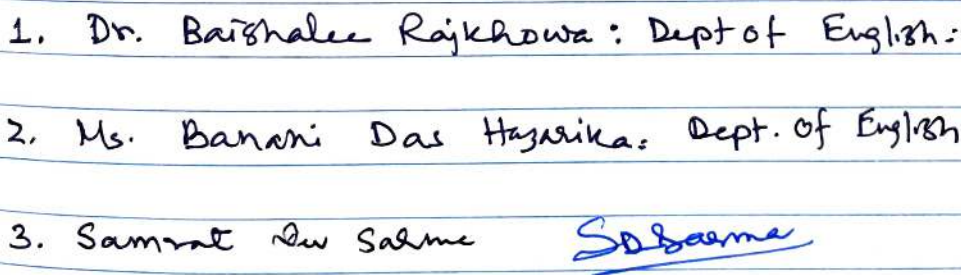 1. Dr. Baishalee Rajkhowa: Dept of English:
2. Ms. Banani Das Hazarika. Dept. of English
3. Samrat Dev Sarma SDSarma